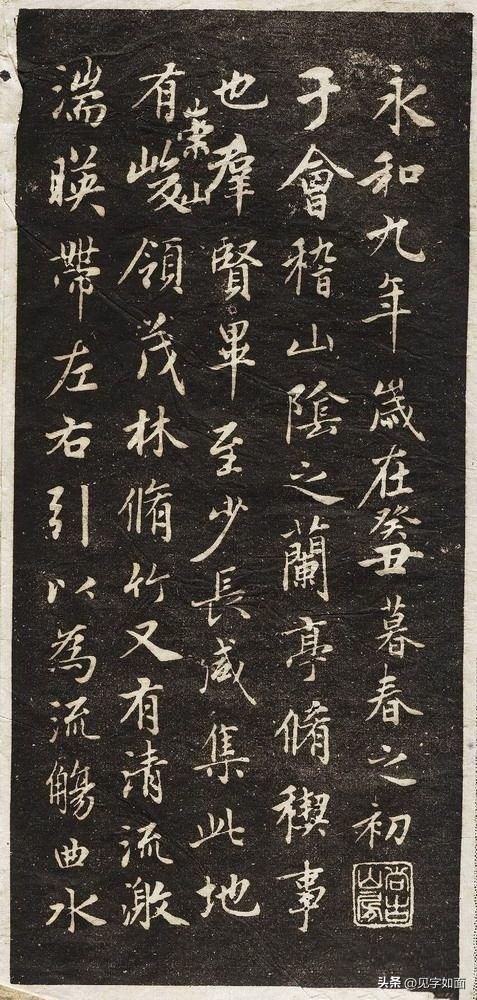 永和九年歲在癸丑暮春之初
于會稽山陰之蘭亭脩禊事
也羣賢畢至少長咸集此地
有崇山峻領茂林脩竹又有清流激
湍暎帶左右引以為流觴曲水
尚古山房
头条 @见字如面